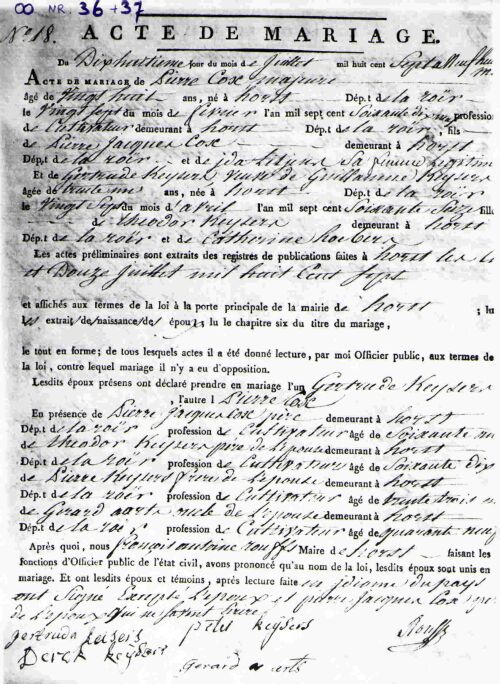 ∞ NR. 36 + 37
N.º 18. ACTE DE MARIAGE.
Du Dixhuitieme jour du mois de Juillet mil huit cent Sept à neuf heures
ACTE DE MARIAGE de Pierre Cox majeure
âgé de Vingt huit ans, né à horst Dép.t de la roër
le Vingt Sept du mois de fevrier l'an mil sept cent Soixante dix neuf profession
de Cultivateur demeurant à horst Dép.t de la roër, fils
de Pierre Jacques Cox demeurant à horst
Dép.t de la roër et de ida Sa femme Legitime
Et de Gertrude Keysers Guillaume Keysers
âgée de trente un ans, née à horst Dép.t de la roër
le Vingt Sept du mois d'avril l'an mil sept cent Soixante Seize fille
de theodor Keysers demeurant à horst
Dép.t de la roër et de Catherine
Les actes préliminaires sont extraits des registres de publications faites à horst les
et Douze Juillet mil huit Cent Sept
et affichés aux termes de la loi à la porte principale de la mairie de horst; lu
les extrait/de/naissance/des époux; lu le chapitre six du titre du mariage,
le tout en forme; de tous lesquels actes il a été donné lecture, par moi Officier public, aux termes de
la loi, contre lequel mariage il n'y a eu d'opposition.
Lesdits époux présens ont déclaré prendre en mariage l'un Gertrude Keysers
, l'autre Pierre Cox
En présence de Pierre Jacques Cox père demeurant à horst
Dép.t de la roër profession de Cultivateur âgé de Soixante
de theodor Keysers père de l'epouse demeurant à horst
Dép.t de la roër profession de Cultivateur âgé de Soixante dix
de Pierre Keysers frere de l'epouse demeurant à horst
Dép.t de la roër profession de Cultivateur âgé de trente trois
de Gerard aerts oncle de l'epouse demeurant à horst
Dép.t de la roër profession de Cultivateur âgé de quarante neuf
Après quoi, nous françois antoine Maire de horst faisant les
fonctions d'Officier public de l'état civil, avons prononcé qu'au nom de la loi, lesdits époux sont unis en
mariage. Et ont lesdits époux et témoins, après lecture faite en idiome du pays
ont Signé Excepté L'epoux et pierre Jacques Cox père
de L'epoux qui ne savent Ecrire
gertruda keisers peter keijsers
Derck keijsers
Gerard aerts